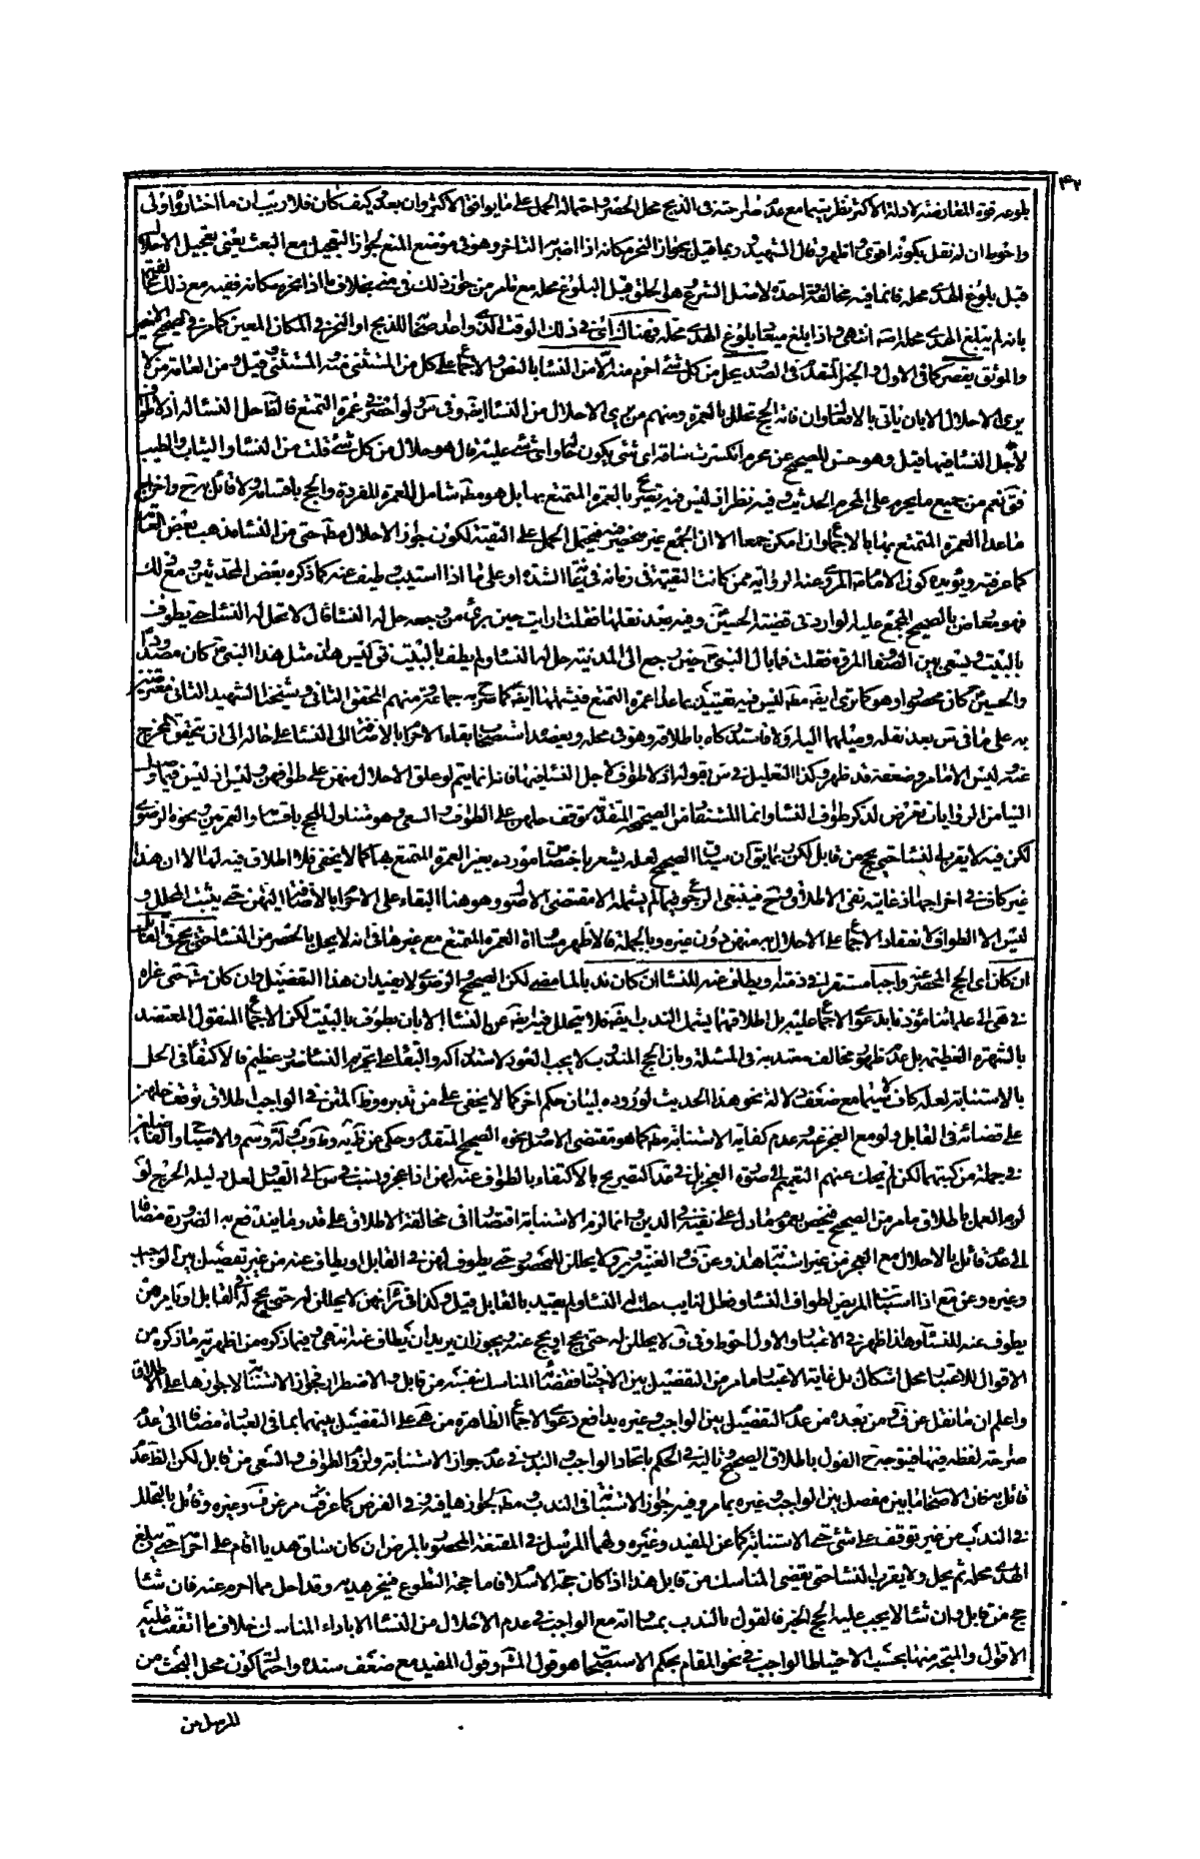 بلوعه قوة المعارضة لادلة الاكثر نظر سيما مع عدم صراحته في الذبح محل الحصر واحتماله الحمل على ما يوافق الاكثر وان بعد وكيف كان فلا ريب ان ما اختاروه اولى
واحوط ان لم نقل بكونه اقوى واظهر وقال الشهيد وربما قيل بجواز النحر مكانه اذا اضر به التاخر وهو في موضع المنع لجواز التعجيل مع البعث يعني تعجيل الاحلال
قبل بلوغ الهدي محله فانما فيه مخالفة واحدة لاصل الشرع هي الحلق قبل بلوغ محله مع ما مر من جواز ذلك في منى بخلاف ما اذا نحره مكانه ففيه مع ذلك
بانه لم يبلغ الهدي محله انتهى واذا بلغ ميعاد بلوغ الهدي محله فهناك اي في ذلك الوقت الذي واعد اصحابا للذبح او النحر في المكان المعين كما في الصحيح
والموثق يقصر كما في الاول والخبر المتقدم في الصد يحل من كل شيء احرم منه الا من النساء بالنص والاجماع على كل من المستثنى منه والمستثنى قيل ومن العامة من لا
يرى الاحلال الا بان ياتي بالافعال وان فاته الحج تحلل بالعمرة ومنهم من يرى الاحلال من النساء ايضا وفي س لو احصر في عمرة التمتع فالظاهر حل النساء له اذ لا طواف
لاجل النساء فيها قيل وهو حسن للصحيح عن محرم انكسرت ساقه اي شيء يكون حاله واي شيء عليه قال هو حلال من كل شيء فقلت من النساء والثياب والطيب
فقال نعم من جميع ما يحرم على المحرم الحديث وفيه نظر اذ ليس فيه تصريح بالعمرة المتمتع بها بل هو مطلق شامل للعمرة المفردة والحج باقسامه ولا قائل به ح واخراج
ما عدا العمرة المتمتع بها بالاجماع وان امكن جمعا الا ان الجمع غير منحصر فيه فيحتمل الحمل على التقية لكون جواز الاحلال مطلقا حتى من النساء مذهب بعض العامة
كما عرفته ويؤيده كون الامام المروي عنه الرواية ممن كانت التقية في زمانه في غاية الشدة او على ما اذا استنيب وطيف عنه كما ذكره بعض المحدثين ومع ذلك
فهو معارض بالصحيح المجمع عليه الوارد في قضية الحسين وفيه بعد نقلها فقلت ارايت حين برئ من وجعه حل له النساء قال لا تحل له النساء حتى يطوف
بالبيت ويسعى بين الصفا والمروة فقلت فما بال النبي حين رجع الى المدينة حل له النساء ولم يطف بالبيت فقال ليس هذا مثل هذا النبي كان مصدودا
والحسين كان محصورا وهو كما ترى ايضا مطلق ليس فيه تقييد بما عدا عمرة التمتع فيشملها ايضا كما صرح به جماعة ومنهم المحقق الثاني وشيخنا الشهيد الثاني
به على ما في س بعد نقله وميلهما اليه ولذا استدلاه باطلاقه وهو في محله ويعضده استصحاب بقاء الاحرام بالاضافة الى النساء على حاله الى ان يتحقق المخرج
عنه وليس الا ما مر وضعفه قد ظهر وكذا التعليل في س بقوله اذ لا طواف لاجل النساء فيها فانه انما يتم لو علق الاحلال منهن على طوافهن وليس اذ ليس فيما وصل
الينا من الروايات تعرض لذكر طواف النساء وانما المستفاد من الصحيحة المتقدمة توقف حلهن على الطواف والسعي وهو متناول للحج باقسامه والعمرتين ونحوه الرضوي
لكن فيه لا يقرب النساء حتى يحج من قابل لكن ربما يقال ان سياق الصحيح لعله يشعر باختصاص مورده بغير العمرة المتمتع بها كما لا يخفى فلا اطلاق فيه لها الا ان هذا
غير كاف في اخراجها اذ غايته نفي الاطلاق وح فينبغي الرجوع فيما لم يشمله الا مقتضى الاصول وهو هنا البقاء على الاحرام بالاضافة اليهن حتى يثبت المحلل و
ليس الا الطواف لانعقاد الاجماع على الاحلال به منهن دون غيره وبالجملة فالاظهر مساواة العمرة المتمتع مع غيرها في انه لا يحل بالحصر من النساء حتى يحج في القابل
ان كان اي الحج المحصر عنه واجبا مستقرا في ذمته ويطاف عنه للنساء ان كان ندبا كما مضى لكن الصحيح والرضوي لا يفيدان هذا التفصيل وان كان مشى عزاه
في هي الى علمائنا مؤذنا بدعوى الاجماع عليه بل اطلاقهما يشمل الندب ايضا فلا يتحلل فيه ايضا عن النساء الا بان يطوف بالبيت لكن الاجماع المنقول المعتضد
بالشهرة العظيمة بل عدم ظهور مخالف معتد به في المسئلة وبان الحج المندوب لا يجب العود لاستدراكه والبقاء على تحريم النساء ضرر عظيم فالاكتفاء في الحل
بالاستنابة لعله كاف سيما مع ضعف دلالة نحو هذا الحديث لوروده لبيان حكم اخر كما لا يخفى على من تدبره وظاهر المتن في الواجب اطلاق توقف حلهن
على قضائه في القابل ولو مع العجز عنه وعدم كفاية الاستنابة مطلقا كما هو مقتضى الاصل ونحوه الصحيح المتقدم
في جملة من كتبهما لكن لم يحك عنهم التعميم لصورة العجز بل في عد التصريح بالاكتفاء بالطواف عنه لهن اذا عجز ونسب في س الى القيل لعل دليله الحرج لو
لزم العمل باطلاق ما مر من الصحيح فيخص بعموم ما دل على نفيه في الدين وانما لزم الاستنابة اقتصارا في مخالفة الاطلاق على قدر ما يندفع به الضرورة مضافا
الى عدم قائل بالاحلال مع العجز من غير استنابة هذا وعن ف والغنية وير لا يحللن للمحصور حتى يطوف لهن في القابل او يطاف عنه من غير تفصيل بين الواجب
وغيره وعن مع اذا استناب المريض لطواف النساء وفعل النايب حلت له النساء ولم يقيد بالقابل قيل وكذا في ئر انهن لا يحللن له حتى يحج عنه في القابل او يامر من
يطوف عنه للنساء وهذا ظهر في الاعتبار والاول احوط وفي ف لا يحللن له حتى يحج او يحج عنه ويجوز ان يريد ان يطاف عنه انتهى وفيما ذكره من اظهرية ما ذكره من
الاقوال للاعتبار محل اشكال بل غاية الاعتبار ما مر من التفصيل بين الاختيار فقضاء المناسك بنفسه من قابل والاضطرار فجواز الاستنابة لا جوازها على الاطلاق
واعلم ان ما نقل عن ف ومن بعده من عدم التفصيل بين الواجب وغيره يدافع دعوى الاجماع الظاهرة من هي على التفصيل بينهما بما في العبارة مضافا الى عدم
صراحة لفظه فيها فيتوجه ح القول باطلاق الصحيح وتاليه في الحكم باتحاد الواجب والندب في عدم جواز الاستنابة ولزوم الطواف والسعي من قابل لكن الظاهر عدم
قائل به فان الاصحاب ما بين مفصل بين الواجب وغيره بما مر وفيه جواز الاستنابة في الندب ومطلق لجوازها فيه وفي الفرض كما عرفت من عن ف وغيره وقائل بالتحلل
في الندب من غير توقف على شيء حتى الاستنابة كما عن المفيد وغيره ولهما المرسل في المقنعة المحصور بالمرض ان كان ساق هديا اقام على احرامه حتى يبلغ
الهدي محله ثم يحل ولا يقرب النساء حتى يقضي المناسك من قابل هذا اذا كان حجة الاسلام فاما حجة التطوع فينحر هديه وقد احل مما احرم عنه فان شاء
حج من قابل وان شاء لا يجب عليه الحج الخبر فالقول بالندب بمساواته مع الواجب في عدم الاحلال من النساء الا باداء المناسك خلاف ما اتفقت عليه
الاقوال والمتجه منها بحسب الاحتياط الواجب في نحو المقام بحكم الاستصحاب هو قول المش وقول المفيد مع ضعف سنده واحتمال كون محل البحث من
للرسل من